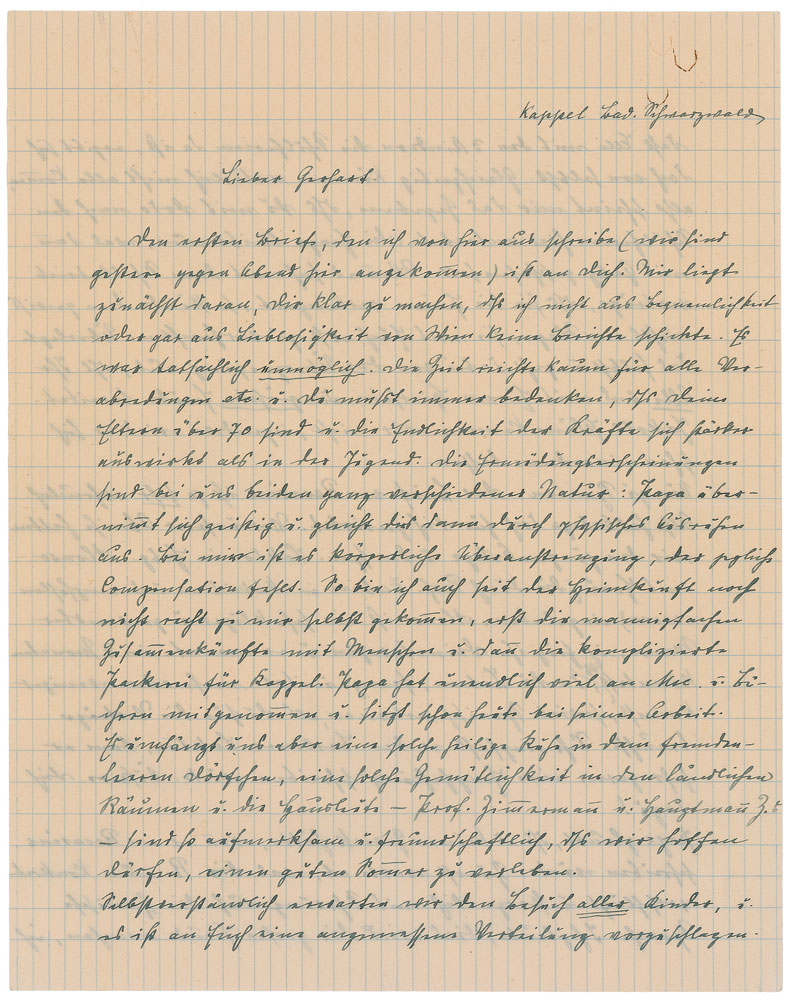 Kappel Bad. Schwarzwald
Lieber Gerhart.
Den ersten Brief, den ich von hier aus schreibe (wir sind
gestern gegen Abend hier angekommen) ist an Dich. Mir liegt
zunächst daran, Dir klar zu machen, dß ich nicht aus Bequemlichkeit
oder gar aus Lieblosigkeit von Wien keine Berichte schickte. Es
war tatsächlich unmöglich. Die Zeit reichte kaum für alle Ver-
abredungen etc. u. Du mußt immer bedenken, dß Deine
Eltern über 70 sind u. die Endlichkeit der Kräfte sich stärker
auswirkt als in der Jugend. Die Ermüdungserscheinungen
sind bei uns beiden ganz verschiedener Natur: Papa über-
nimmt sich geistig u. gleicht dies dann durch physisches Ausruhen
aus. Bei mir ist es körperliche Überanstrengung, der jegliche
Compensation fehlt. So bin ich auch seit der Heimkunft noch
nicht recht zu mir selbst gekommen, erst die mannigfachen
Zusammenkünfte mit Menschen u. dann die komplizierte
Packerei für Kappel. Papa hat unendlich viel an Msc. u. Bü-
chern mitgenommen u. sitzt schon heute bei seiner Arbeit.
Es umfängt uns aber eine solche heilige Ruhe in dem fremden-
leeren Dörfchen, eine solche Gemütlichkeit in den ländlichen
Räumen u. die Hausleute – Prof. Zimmermann u. Hauptmann Z.s
– sind so aufmerksam u. freundschaftlich, dß wir hoffen
dürfen, einen guten Sommer zu verleben.
Selbstverständlich erwarten wir den Besuch aller Kinder, u.
es ist an Euch eine angemessene Verteilung vorzuschlagen.